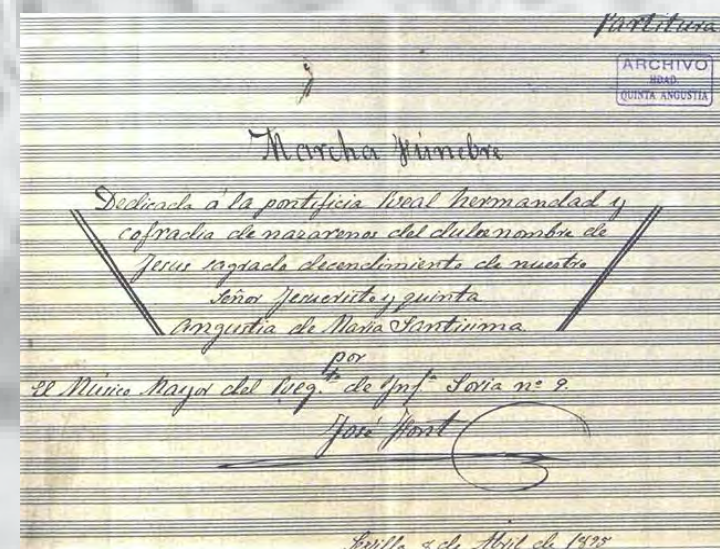 Partitura
ARCHIVO
HDAD.
QUINTA ANGUSTIA
Marcha Fúnebre
Dedicada á la pontificia Real hermandad y
cofradia de nazarenos del dulce nombre de
Jesus sagrado decendimiento de nuestro
Señor Jesucristo y quinta
Angustia de Maria Santisima
por
El Músico Mayor del Reg.to de Inf.a Soria nº 9.
José Font
Sevilla 8 de Abril de 1895